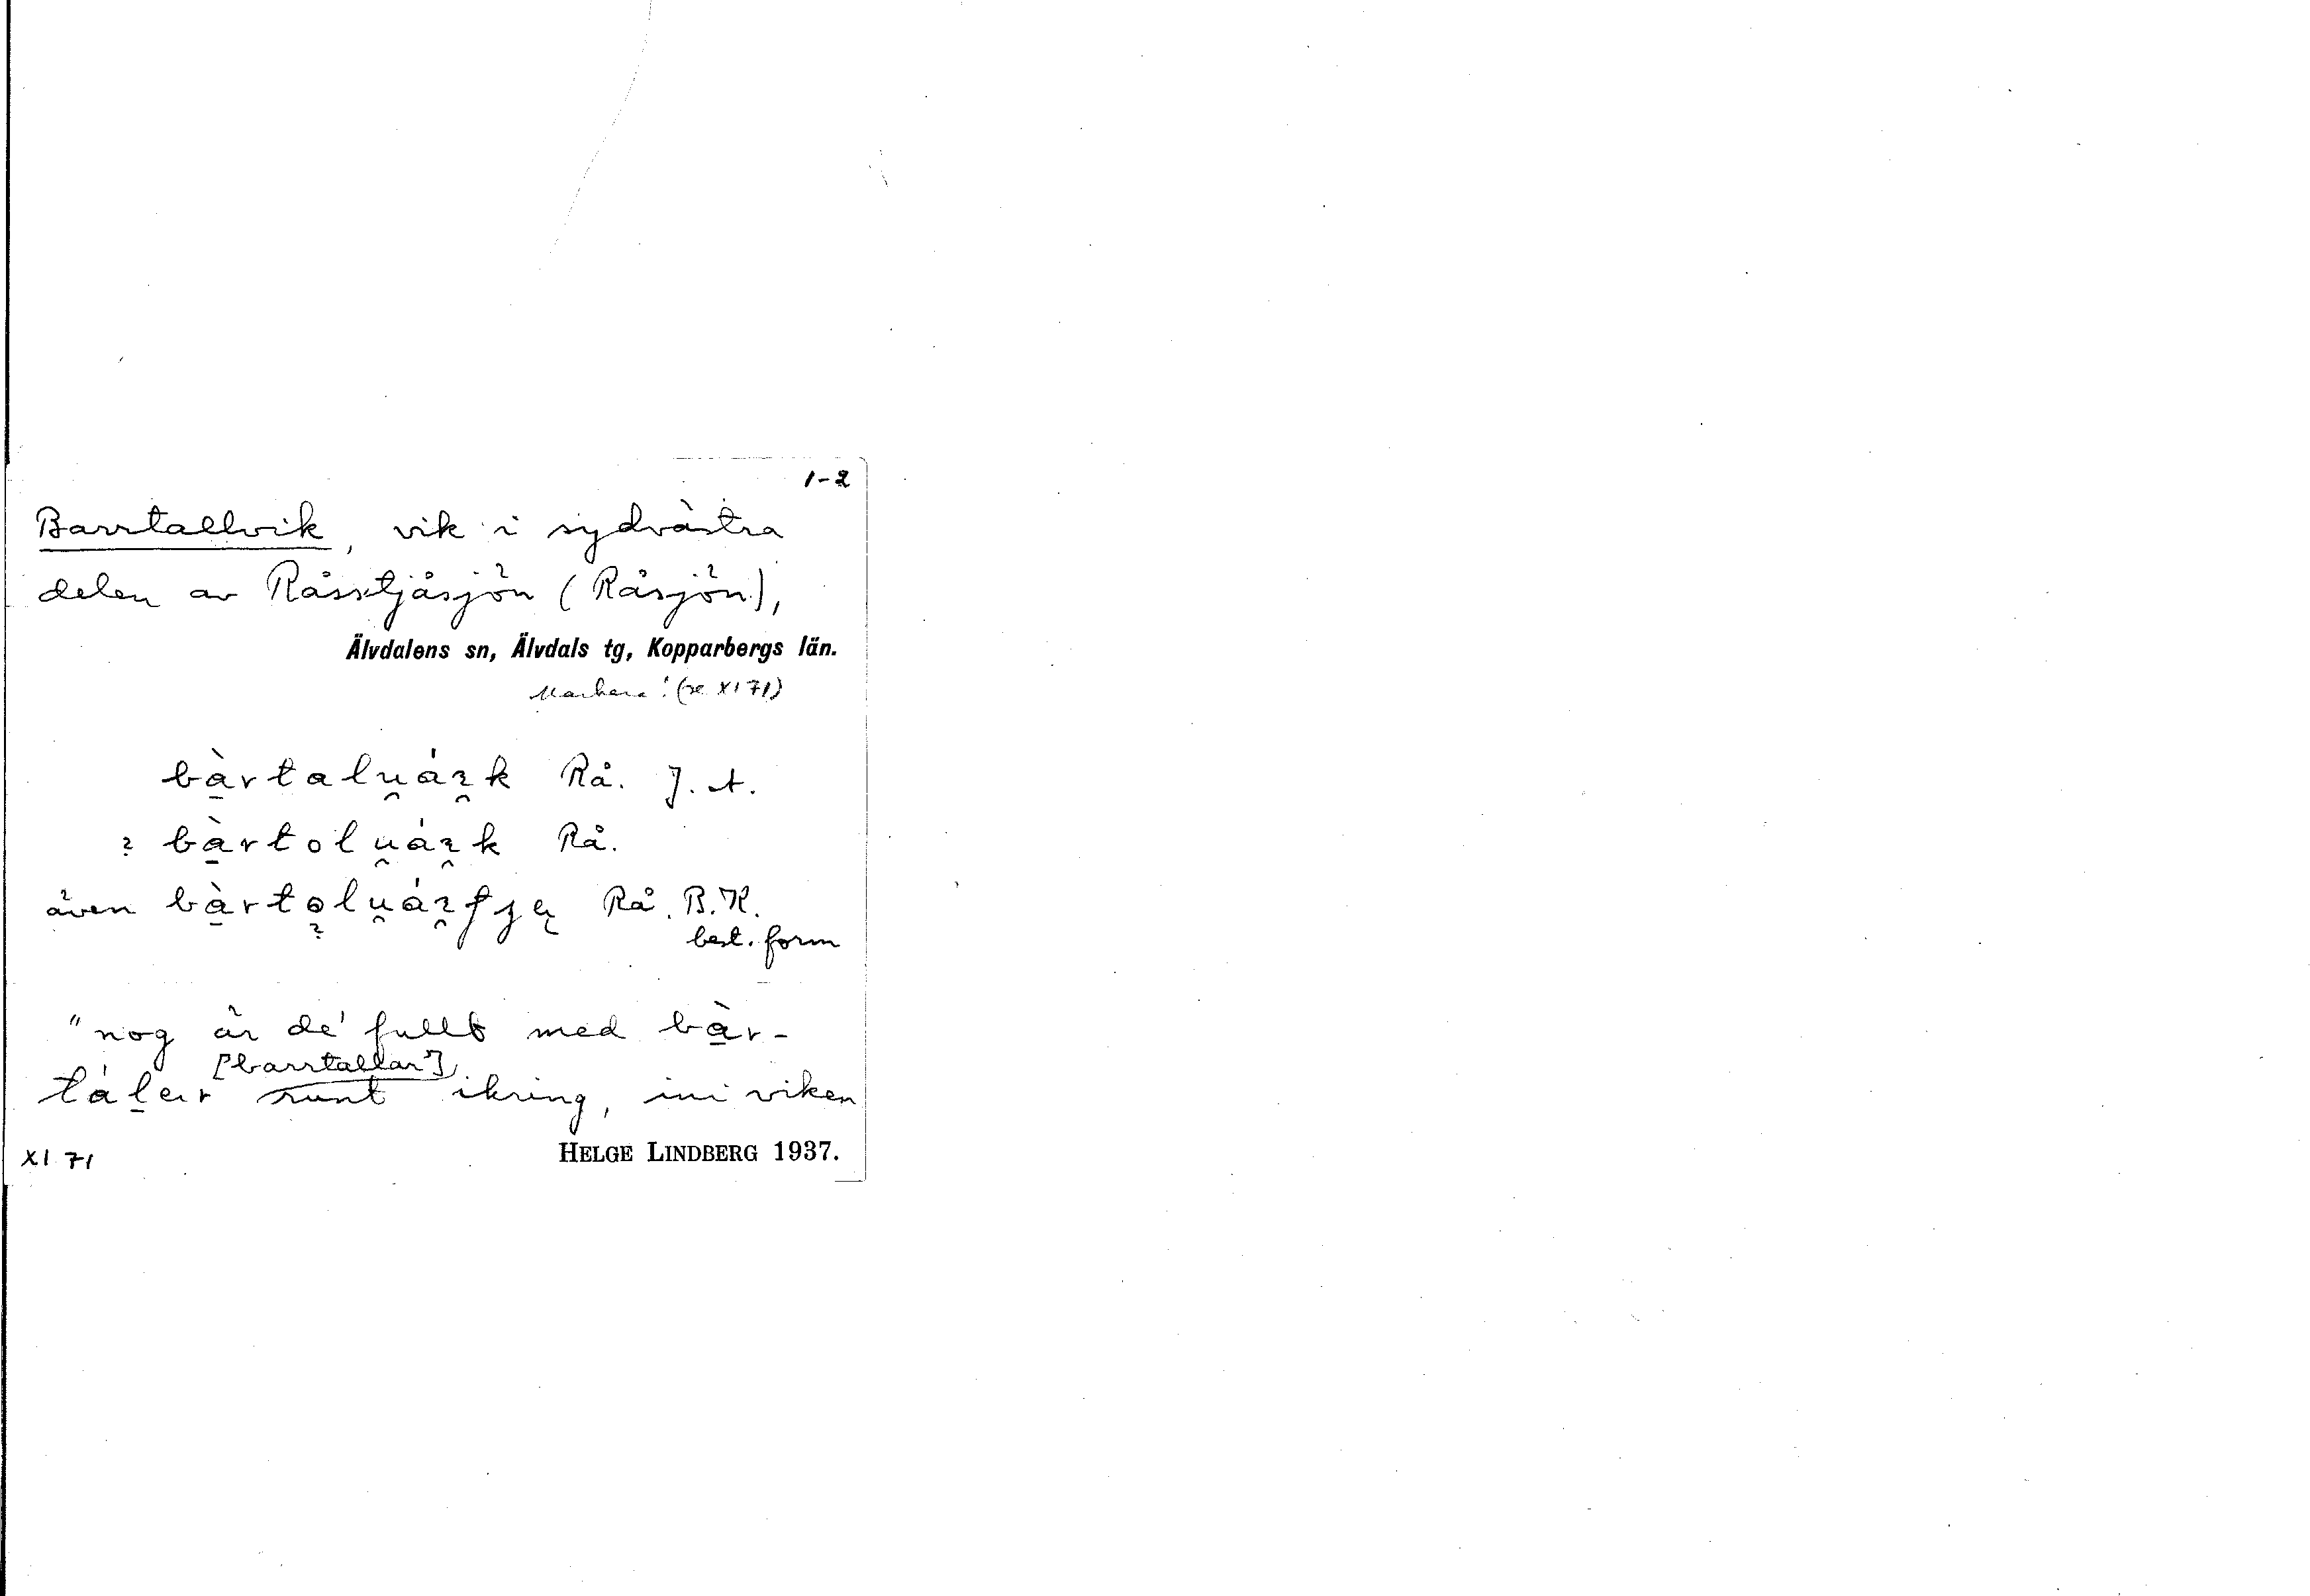 1-2
Barrtallvik, vik i sydvästra
delen av Råsstjåsjön (Råsjön),
Älvdalens sn, Älvdals tg, Kopparbergs län.
(se XI 71)
bàrtalu̯áı̯k Rå. J. A.
? bàrtolu̯áı̯k Rå.
även Rå. B.K.
best. form
"nog är de' fullt med bàr-
["barrtallar"]
táler runt ikring, ini viken
XI 71 HELGE LINDBERG 1937.